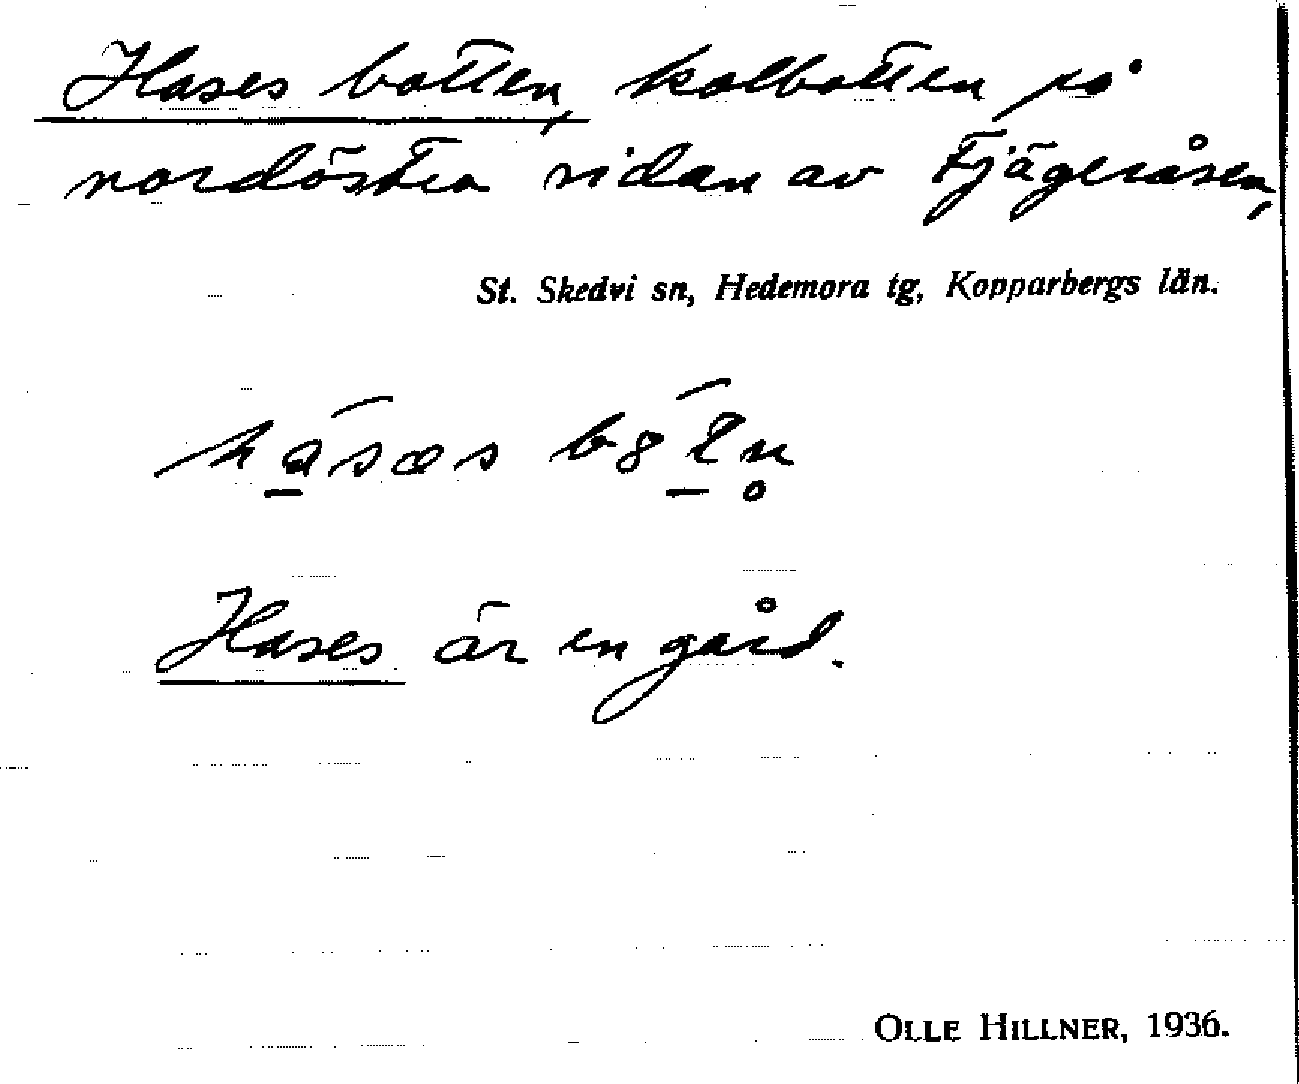 Hases botten, kolbotten på
nordöstra sidan av Fjägeråsen,
St. Skedvi sn, Hedemora tg, Kopparbergs län.
Hases är en gård.
OLLE HILLNER, 1936.